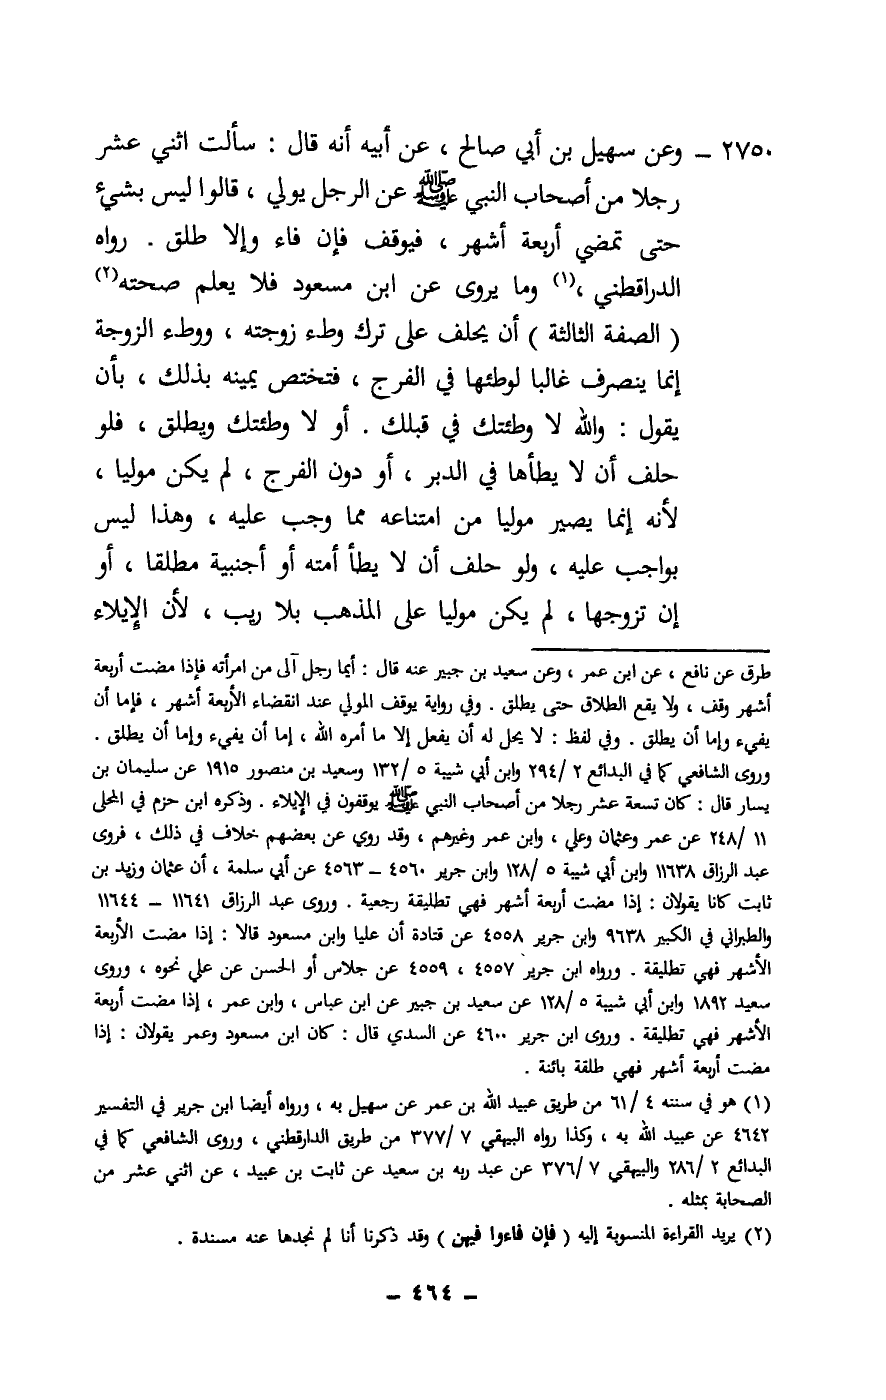 ٢٧٥٠ ــ وعن سهيل بن أبي صالح ، عن أبيه أنه قال : سألت اثني عشر
رجلا من أصحاب النبي ﷺ عن الرجل يولي ، قالوا ليس بشيء
حتى تمضي أربعة أشهر ، فيوقف فإن فاء وإلا طلق . رواه
الدراقطني ،(١) وما يروى عن ابن مسعود فلا يعلم صحته(٢)
( الصفة الثالثة ) أن يحلف على ترك وطء زوجته ، ووطء الزوجة
إنما ينصرف غالبا لوطئها في الفرج ، فتختص يمينه بذلك ، بأن
يقول : والله لا وطئتك في قبلك . أو لا وطئتك ويطلق ، فلو
حلف أن لا يطأها في الدبر ، أو دون الفرج ، لم يكن موليا ،
لأنه إنما يصير موليا من امتناعه مما وجب عليه ، وهذا ليس
بواجب عليه ، ولو حلف أن لا يطأ أمته أو أجنبية مطلقا ، أو
إن تزوجها ، لم يكن موليا على المذهب بلا ريب ، لأن الإيلاء
طرق عن نافع ، عن ابن عمر ، وعن سعيد بن جبير عنه قال : أيما رجل آلى من امرأته فإذا مضت أربعة
أشهر وقف ، ولا يقع الطلاق حتى يطلق . وفي رواية يوقف المولي عند انقضاء الأربعة أشهر ، فإما أن
يفيء وإما أن يطلق . وفي لفظ : لا يحل له أن يفعل إلا ما أمره الله ، إما أن يفيء وإما أن يطلق .
وروى الشافعي كما في البدائع ٢ /٢٩٤ وابن أبي شيبة ٥ /١٣٢ وسعيد بن منصور ١٩١٥ عن سليمان بن
يسار قال : كان تسعة عشر رجلا من أصحاب النبي ﷺ يوقفون في الإيلاء . وذكره ابن حزم في المحلى
١١ /٢٤٨ عن عمر وعثمان وعلي ، وابن عمر وغيرهم ، وقد روي عن بعضهم خلاف في ذلك ، فروى
عبد الرزاق ١١٦٣٨ وابن أبي شيبة ٥ /١٢٨ وابن جرير ٤٥٦٠ – ٤٥٦٣ عن أبي سلمة ، أن عثمان وزيد بن
ثابت كانا يقولان : إذا مضت أربعة أشهر فهي تطليقة رجعية . وروى عبد الرزاق ١١٦٤١ – ١١٦٤٤
والطبراني في الكبير ٩٦٣٨ وابن جرير ٤٥٥٨ عن قتادة أن عليا وابن مسعود قالا : إذا مضت الأربعة
الأشهر فهي تطليقة . ورواه ابن جرير ٤٥٥٧ ، ٤٥٥٩ عن جلاس أو الحسن عن علي نحوه ، وروى
سعيد ١٨٩٢ وابن أبي شيبة ٥ /١٢٨ عن سعيد بن جبير عن ابن عباس ، وابن عمر ، إذا مضت أربعة
الأشهر فهي تطليقة . وروى ابن جرير ٤٦٠٠ عن السدي قال : كان ابن مسعود وعمر يقولان : إذا
مضت أربعة أشهر فهي طلقة بائنة .
(١) هو في سننه ٤ /٦١ من طريق عبيد الله بن عمر عن سهيل به ، ورواه أيضا ابن جرير في التفسير
٤٦٤٢ عن عبيد الله به ، وكذا رواه البيهقي ٧ /٣٧٧ من طريق الدارقطني ، وروى الشافعي كما في
البدائع ٢ /٢٨٦ والبيهقي ٧ /٣٧٦ عن عبد ربه بن سعيد عن ثابت بن عبيد ، عن اثني عشر من
الصحابة بمثله .
(٢) يريد القراءة المنسوبة إليه ( فإن فاءوا فيهن ) وقد ذكرنا أنا لم نجدها عنه مسندة .
– ٤٦٤ –